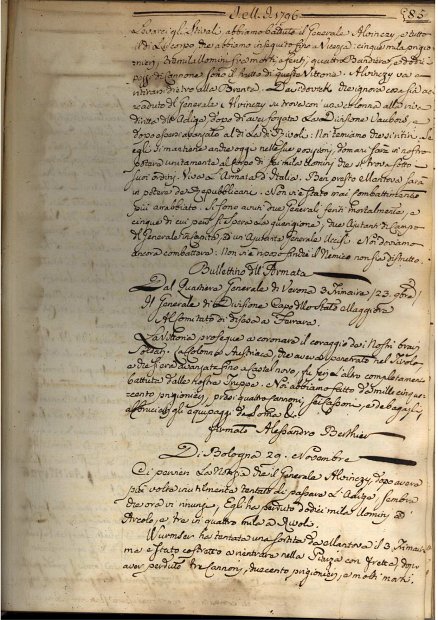 dell. A. 1796
85
Levarci gli Stivali, abbiamo battuto il Generale Alvinczy, e tutto
il di Lui corpo che abbiamo inseguito fino a Vicenza: cinque mila prigio
nieri, 3 mila Uomini fra morti, e feriti, quattro Bandiere, e dodici
pezzi di Cannone sono il frutto di questa Vittoria. Alvinczy va a
ritirarsi dietro alla Brenta. Davidovick che ignora cosa sia ac
caduto del Generale Alvinczy si trova con una colonna alla riva
diritta dell' Adige, dopo di aver forzata La Divisione Vaubois, e
dopo essersi avanzato al di La di Rivoli. Noi temiamo che si ritiri. Se
egli rimane anche oggi nelle sue posizioni, domani sarà in nostro
potere unitamente al corpo di sei mila Uomini che si trova sotto
suoi ordini. Viva L' Armata d' Italia. Ben presto Mantova sarà
in potere de' Repubblicani. Non vi è stato mai combattimento
più arrabbiato. Vi sono avuti due Generali feriti mortalmente, e
cinque di cui però si spera la guarigione, due Ajutanti di Campo
del Generale in Capite, ed un Ajutante Generale Uccisi. Noi dobbiamo
ancora combattere: Non vi è riposo finchè il Nemico non sia distrutto.
Bullettino dell' Armata
Dal Quartiere Generale di Verona 3 Frimaire (23. 9bre)
Il Generale di Divisione Capo dello Stato Maggiore
Al Comitato di difesa a Ferrara.
La Vittoria prosegue a coronare il coraggio dei Nostri bravi
Soldati. La Colonna Austriaca, che aveva penetrato nel Tirolo
e che s'era avanzata fino a Castel novo, fu jeri l' altro completamente
battuta dalle Nostre Truppe. Noi abbiamo fatto due mille cinque
cento prigionieri, presi quattro Cannoni, sei Cassoni, e de bagagli,
abbruciati gli equipaggi de Pontoni &c
firmato Alessandro Berthier
Di Bologna 29. Novembre
Ci perviene La Notizia che il Generale Alvinczy, dopo avere
più volte inutilmente tentato di passare L' Adige, sembra
che ora vi rinunzj. Egli ha perduto dodici mila Uomini ad
Arcole, e tre in quattro mila a Rivoli.
Wurmser ha tentata una sortita da Mantova il 3. Frimaire
ma è stato costretto a rientrare nella Piazza con fretta, dopo
aver perduto tre Cannoni, duecento prigionieri, e molti morti.